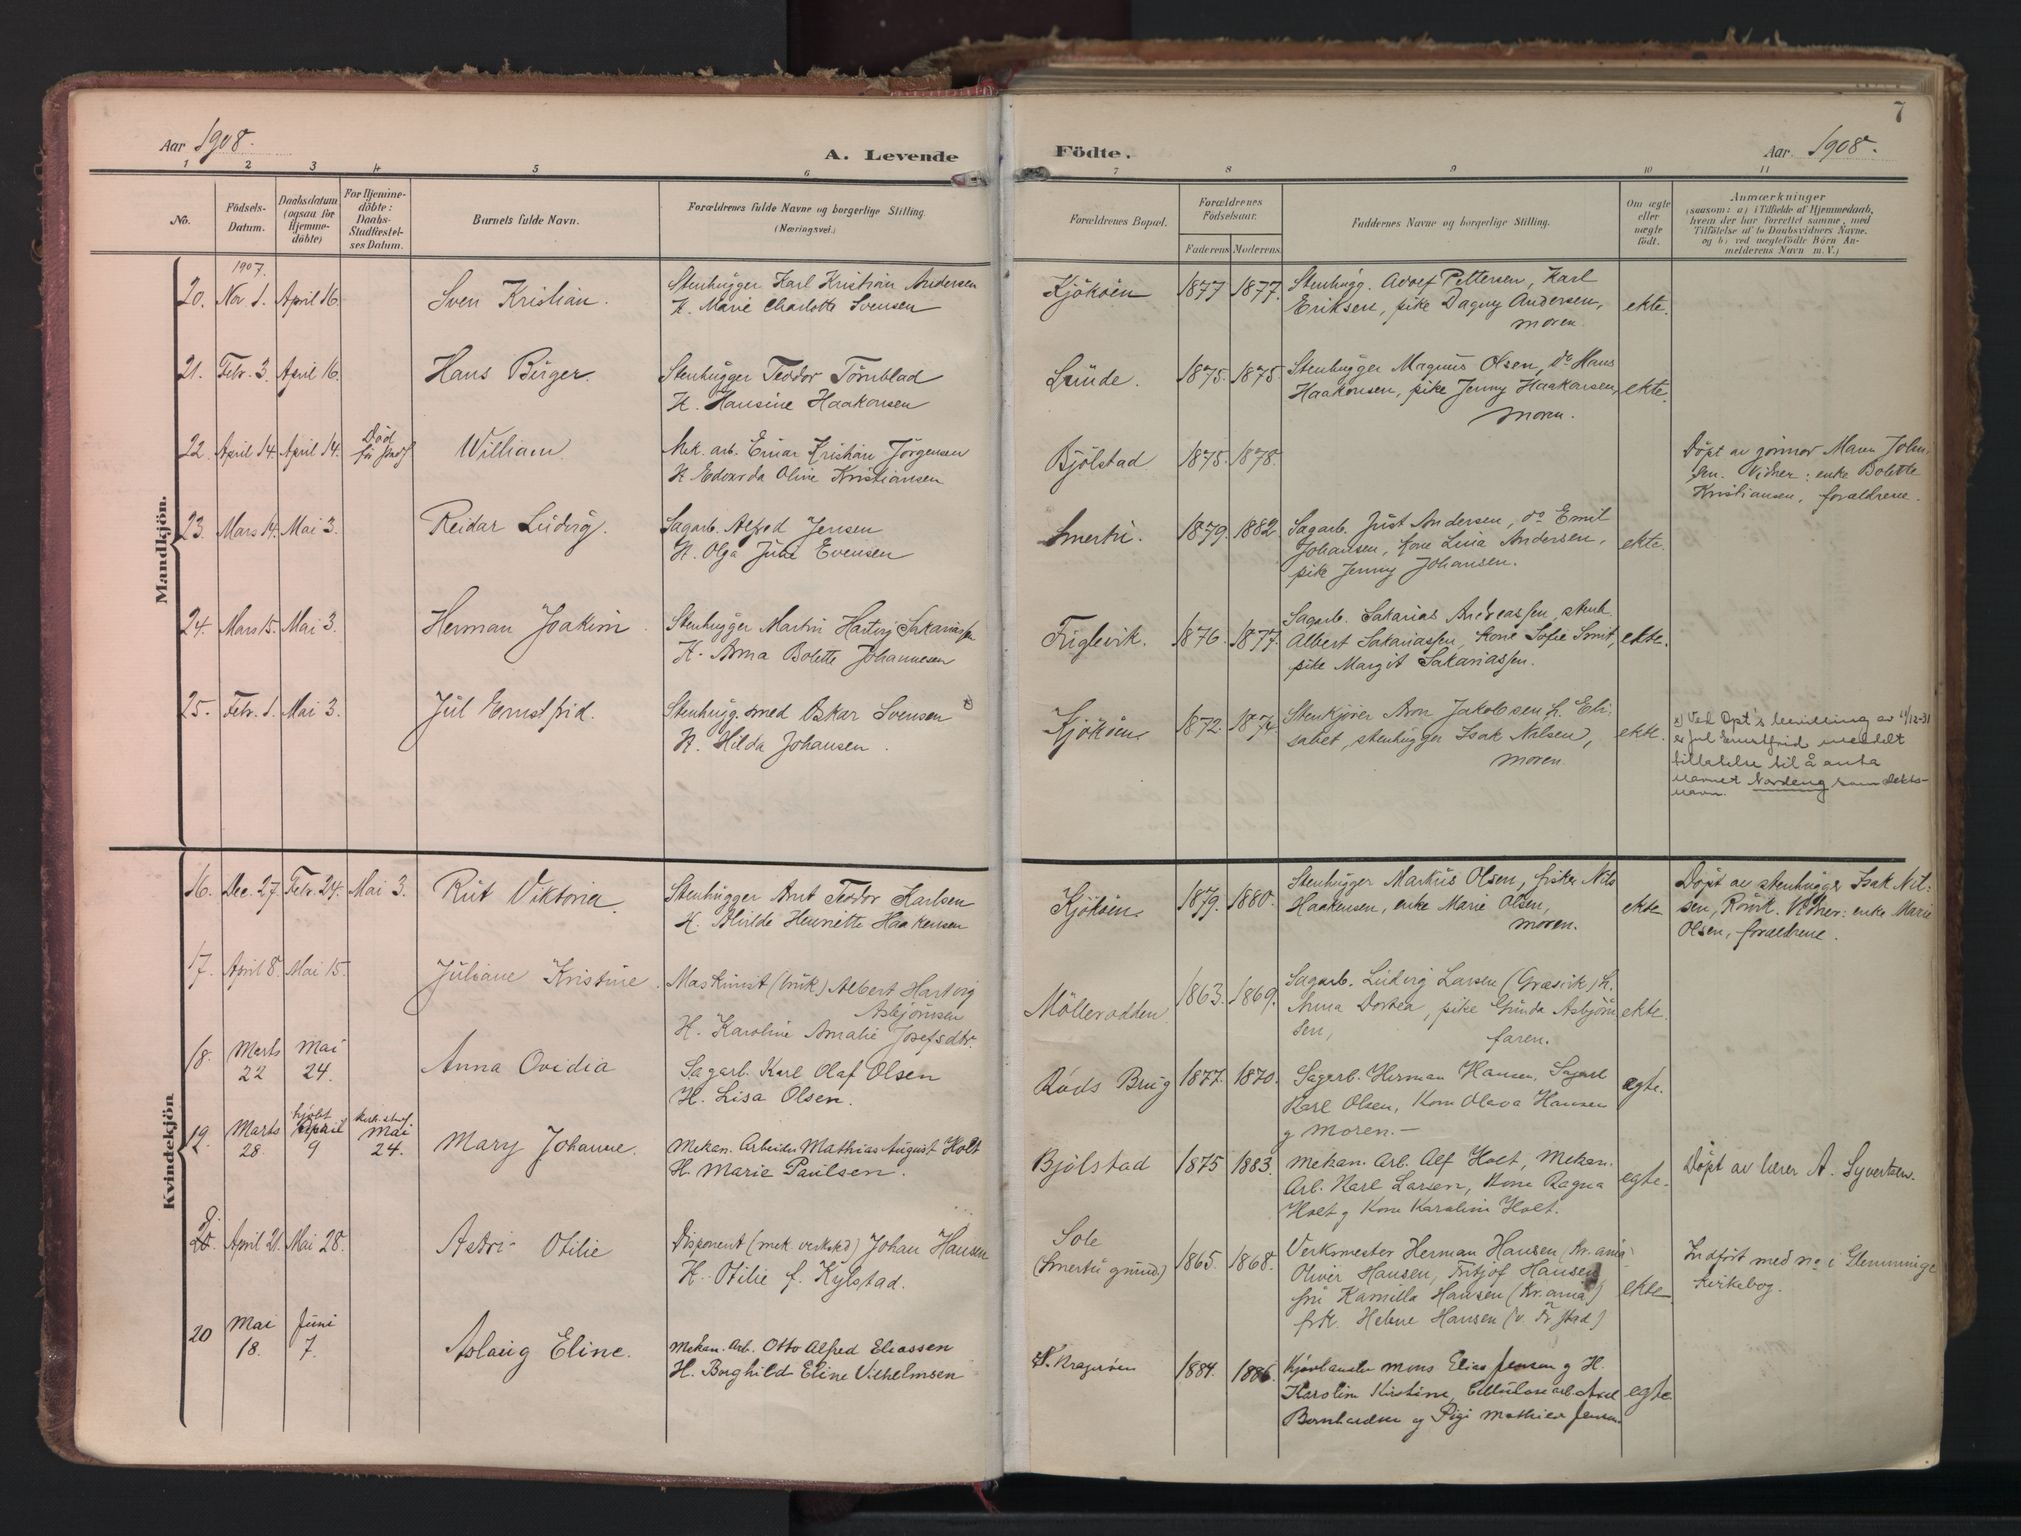 7
Aar 1908.
A. Levende
Födte.
Aar 1908.
1 2 3 4 5 6 7 8 9 10 11
No.
Födsels-
Datum.
Daabsdatum
(ogsaa for
Hjemme-
döbte)
For Hjemme-
döbte:
Daabs-
Stadfæstel-
ses Datum.
Barnets fulde Navn.
Forældrenes fulde Navne og borgerlige Stilling.
(Næringsvei.)
Forældrenes Bopæl.
Forældrenes
Födselsaar.
Faderens Moderens
Faddernes Navne og borgerlige Stilling.
Om ægte
eller
uægte
födt.
Anmærkninger
(saasom: a) i Tilfælde af Hjemmedaab,
hvem der har forrettet samme, med
Tilföielse af to Daabsvidners Navne.
og b) ved uægtefödte Börn An-
melderens Navn m. V.)
Mandkjön.
1907.
20. Nov. 1. April 16. Sven Kristian.
Stenhugger Karl Kristian Andersen
H. Marie Charlotte Svensen
Kjøkøen 1877 1877.
Stenhugg. Adolf Pettersen, Karl
Eriksen, pike Dagny Andersen,
moren.
ekte.
21. Febr. 3. April 16. Hans Birger.
Stenhugger Teodor Törnblad
H. Hansine Haakonsen
Lunde. 1875. 1875.
Stenhugger Magnus Olsen, do Hans
Haakonsen, pike Jenny Haakonsen,
moren.
ekte.
22. April 14. April 14. Död
William.
Mek. arb. Einar Kristian Jørgensen
H. Edvarda Oline Kristiansen
Bjølstad 1875. 1878.
Döpt av jormor Maren Johan-
sen. Vidner: enke Bolette
Kristiansen, forældrene.
23. Mars 14. Mai 3. Reidar Ludvig.
Sagarb. Alfred Jensen
H. Olga Julie Evensen
Smertu. 1879. 1882.
Sagarb. Just Andersen, do Emil
Johansen, kone Lina Andersen,
pike Jenny Johansen.
ekte.
24. Mars 15. Mai 3. Herman Joakim.
Stenhugger Martin Hartvig Sakariassen
H. Anna Bolette Johannesen
Fuglevik. 1876. 1877.
Sagarb. Sakarias Andreassen, stenh.
Albert Sakariassen, kone Sofie Smit,
pike Margit Sakariassen.
ekte.
25. Febr. 1. Mai 3. Jul Ernstfrid.
Stenhugg. smed Oskar Svensen x)
H. Hilda Johansen.
Kjøkøen. 1872. 1874.
Stenkjører Aron Jakobsen h. Eli-
sabet, stenhugger Isak Nilsen,
moren.
ekte.
x) Ved Dpt's bevilling av 11/12-31
er Jul Ernstfrid meddelt
tillatelse til å anta
navnet Nordeng som slekts-
navn.
Kvindekjön
16. Dec. 27. Febr. 24. Mai 3. Rut Viktoria.
Stenhugger Arnt Teodor Karlsen
H. Hilde Henriette Haakensen
Kjøkøen. 1879. 1880.
Stenhugger Markus Olsen, fisker Nils
Haakensen, enke Marie Olsen,
moren.
ekte
Döpt av stenhugger Isak Nil-
sen, Rørvik. Vidner: enke Marie
Olsen, forældrene.
17. April 8. Mai 15. Juliane Kristine.
Maskinist (bruk) Albert Hartvig
Asbjørnsen
H. Karoline Amalie Josefsdtr.
Møllerodden. 1863. 1869.
Sagarb. Ludvig Larsen (Græsvik) h.
Anna Dortea, pike Gunda Asbjørn-
sen, faren.
ekte.
18. Marts 22 Mai 24. Anna Ovidia
Sagarb. Karl Olaf Olsen
H. Lisa Olsen.
Røds Brug 1877. 1870.
Sagarb. Herman Hansen, Sagarb
Karl Olsen, Kone Olava Hansen
g Moren.-
ægte.
19. Marts 28 hjdbt April 9 kirk. stadf. Mai 24. Mary Johanne.
Mekan. Arbeider Mathias August Holt
H. Marie Paulsen.
Bjølstad 1875 1883.
Mekan. Arb. Alf Holt, Mekan.
Arb. Karl Larsen, Kone Ragna
Holt g Kone Karoline Holt.
egte.
Döpt av lærer A. Syvertsen.
20. April 21. Mai 28. Astri Otilie
Disponent (mek. verksted) Johan Hansen
H. Otilie f. Kylstad.
Sole
(Smertu grund.)
1865. 1868.
Verksmester Herman Hansen (Kr.ania)
Oliver Hansen, Fritjof Hansen
fru Kamilla Hansen (Kr.ania)
frk. Helene Hansen (v. Fr.stad)
ekte.
Indført med no i Glemminge
kirkebog.
20 Mai 18. Juni 7. Aslaug Eline.
Mekan. Arb. Otto Alfred Eliassen
H. Borghild Eline Vilhelmsen
N. Kragerøen 1884. 1886.
Mons Elias Jensen g H.
Karoline Kirstine, Cellulosearb. Axel
Bernhardsen og Pige Mathilde Jensen.
egte.